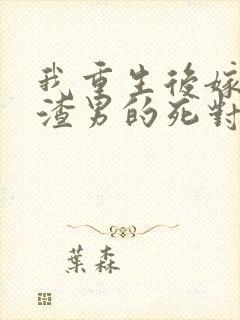 我重生後嫁
渣男的死對
葉森